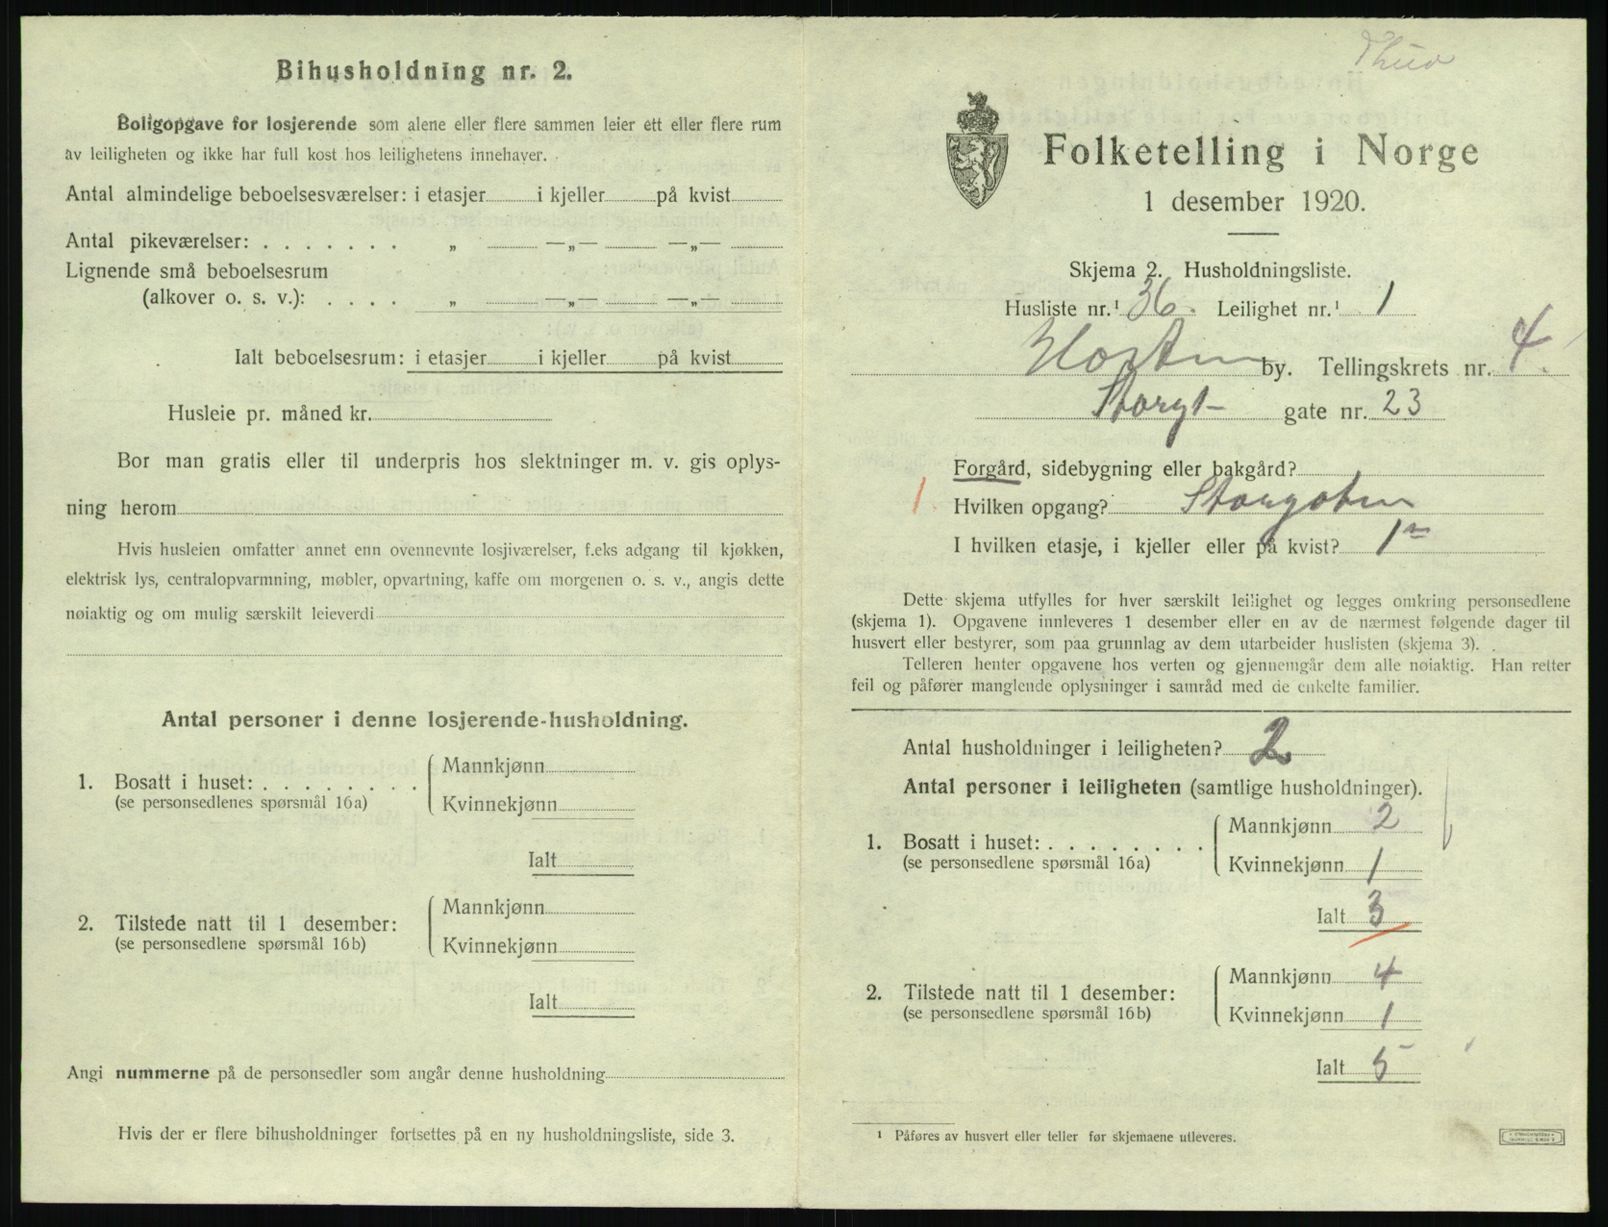 Bihusholdning nr. 2.
Boligopgave for losjerende som alene eller flere sammen leier ett eller flere rum
av leiligheten og ikke har full kost hos leilighetens innehaver.
Antal almindelige beboelsesværelser: i etasjer i kjeller på kvist
Antal pikeværelser: . . . . . . . „ —„— —„—
Lignende små beboelsesrum
(alkover o. s. v.): . . . . „ —„— —„—
Ialt beboelsesrum: i etasjer i kjeller på kvist
Husleie pr. måned kr.
Bor man gratis eller til underpris hos slektninger m. v. gis oplys-
ning herom
Hvis husleien omfatter annet enn ovennevnte losjiværelser, f.eks adgang til kjøkken,
elektrisk lys, centralopvarmning, møbler, opvartning, kaffe om morgenen o. s. v., angis dette
nøiaktig og om mulig særskilt leieverdi
Antal personer i denne losjerende-husholdning.
1. Bosatt i huset: . . . . . . . .
(se personsedlenes spørsmål 16a)
Mannkjønn
Kvinnekjønn
Ialt
2. Tilstede natt til 1 desember:
(se personsedlene spørsmål 16b)
Mannkjønn
Kvinnekjønn
Ialt
Angi nummerne på de personsedler som angår denne husholdning
Hvis der er flere bihusholdninger fortsettes på en ny husholdningsliste, side 3.
Folketelling i Norge
1 desember 1920.
Skjema 2. Husholdningsliste.
Husliste nr.¹ 36. Leilighet nr.¹ 1
by. Tellingskrets nr. 4.
Storgt gate nr. 23
Forgård, sidebygning eller bakgård?
1. Hvilken opgang? Storgaten
I hvilken etasje, i kjeller eller på kvist? 1
Dette skjema utfylles for hver særskilt leilighet og legges omkring personsedlene
(skjema 1). Opgavene innleveres 1 desember eller en av de nærmest følgende dager til
husvert eller bestyrer, som paa grunnlag av dem utarbeider huslisten (skjema 3).
Telleren henter opgavene hos verten og gjennemgår dem alle nøiaktig. Han retter
feil og påfører manglende oplysninger i samråd med de enkelte familier.
Antal husholdninger i leiligheten? 2
Antal personer i leiligheten (samtlige husholdninger).
1. Bosatt i huset: . . . . . . . .
(se personsedlene spørsmål 16a)
Mannkjønn 2
Kvinnekjønn 1
Ialt 3
2. Tilstede natt til 1 desember:
(se personsedlene spørsmål 16b)
Mannkjønn 4
Kvinnekjønn 1
Ialt 5
¹ Påføres av husvert eller teller før skjemaene utleveres.